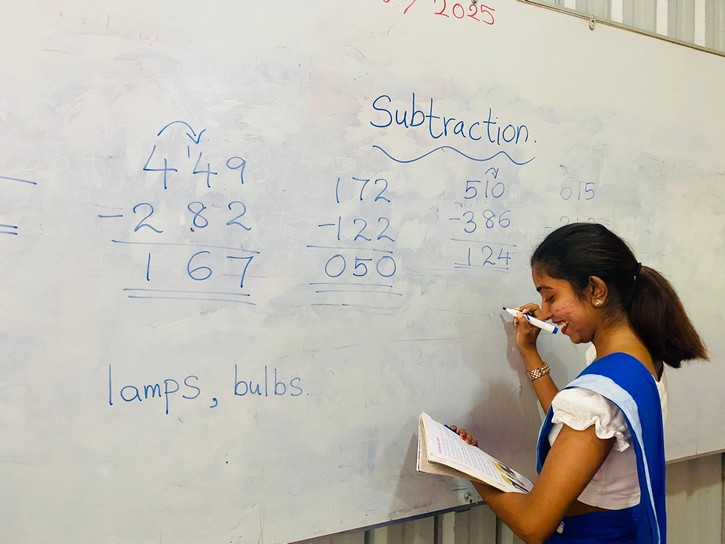 2025
Subtraction.
449
-282
167
172
-122
050
510
-386
124
615
lamps, bulbs.